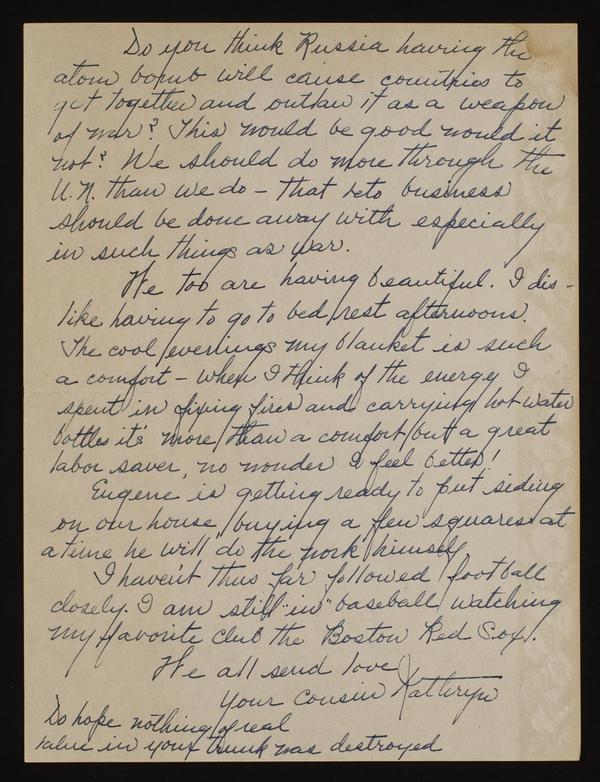 Do you think Russia having the
atom bomb will cause countries to
get together and outlaw it as a weapon
of war? This would be good would it
not? We should do more through the
U.N. than we do - that veto business
should be done away with especially
in such things as war.
We too are having beautiful. I dis-
like having to go to bed, rest afternoons.
The cool evenings my blanket is such
a comfort - when I think of the energy I
spent in fixing fires and carrying hot water
bottles it's more than a comfort but a great
labor saver, no wonder I feel better!
Eugene is getting ready to put siding
on our house, buying a few squares at
a time he will do the work himself.
I haven't thus far followed football
closely. I am still "in" baseball watching
my favorite club the Boston Red Sox.
We all send love
Your cousin Kathryn
Do hope nothing of real
value in your trunk was destroyed